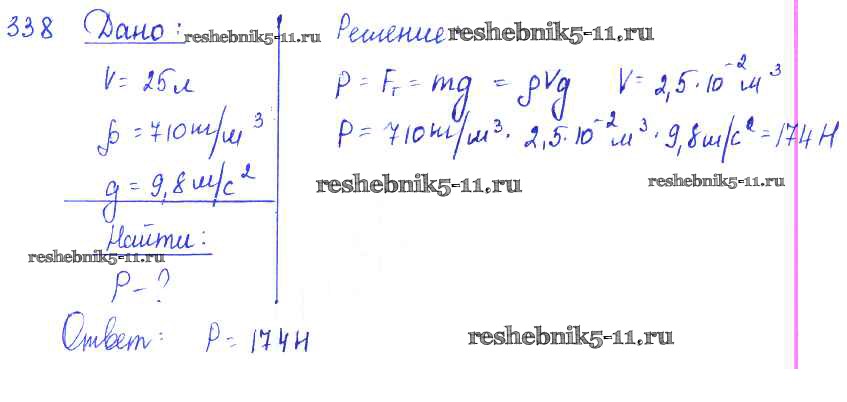 338 Дано: reshebnik5-11.ru
V = 25 л
ρ = 710 кг/м³
g = 9,8 м/с²
Найти:
reshebnik5-11.ru
P - ?
Решение reshebnik5-11.ru
P = Fт = mg = ρVg V = 2,5·10⁻² м³
P = 710 кг/м³ · 2,5·10⁻² м³ · 9,8 м/с² = 174 Н
reshebnik5-11.ru reshebnik5-11.ru
Ответ: P = 174 Н
reshebnik5-11.ru